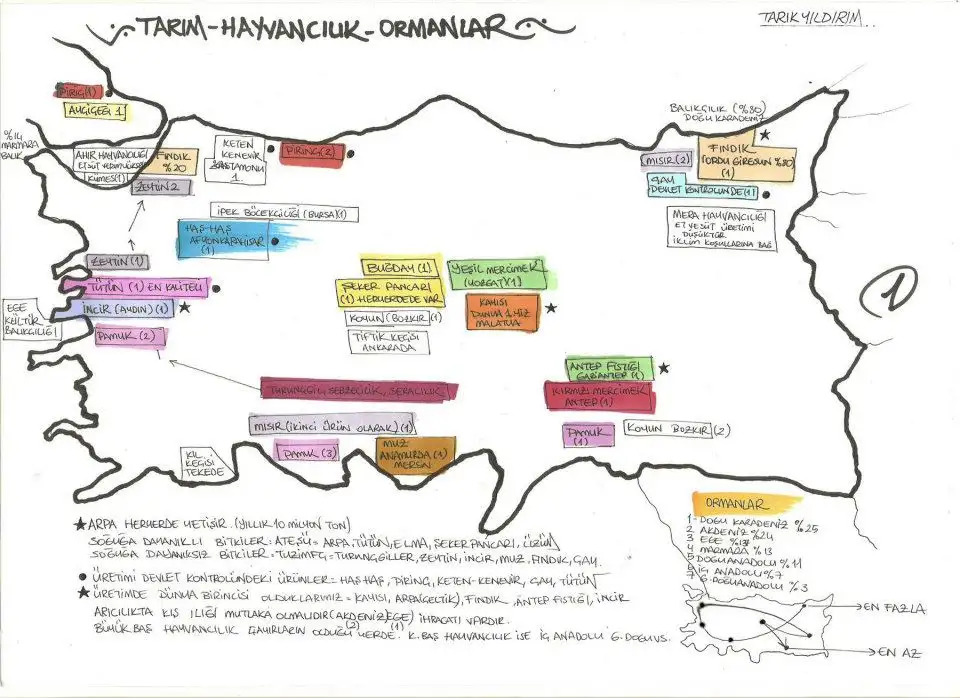 TARIM-HAYVANCILIK-ORMANLAR
TARIK YILDIRIM..
PİRİÇ(1)
AYÇİÇEĞİ 1
%14
MARMARA
BALIK
AHIR HAYVANCILIĞI
ET SÜT VERİMİ YÜKSEK
KÜMES(1)
FINDIK
%20
ZEYTİN 2
KETEN
KENEVİR
KASTAMONU
1.
PİRİNÇ(2)
BALIKÇILIK (%80)
DOĞU KARADENİZ
MISIR(2)
FINDIK
(ORDU GİRESUN %80)
(1)
ÇAY
DEVLET KONTROLÜNDE(1)
MERA HAYVANCILIĞI
ET VE SÜT ÜRETİMİ
DÜŞÜKTÜR
İKLİM KOŞULLARINA BAĞ
İPEK BÖCEKÇİLİĞİ (BURSA)(1)
HAŞ-HAŞ
AFYONKARAHİSAR
(1)
ZEYTİN(1)
TÜTÜN (1) EN KALİTELİ
İNCİR (AYDIN)(1)
PAMUK (2)
EGE
KÜLTÜR
BALIKÇILIĞI
BUĞDAY (1)
ŞEKER PANCARI
(1) HERYERDE VAR
KOYUN (BOZKIR)(1)
TİFTİK KEÇİSİ
ANKARADA
YEŞİL MERCİMEK
(YOZGAT)(1)
KAYISI
DÜNYA 1.MİZ
MALATYA
1
ANTEP FISTIĞI
GAZİANTEP (1)
KIRMIZI MERCİMEK
ANTEP(1)
PAMUK
(1)
KOYUN BOZKIR(2)
TURUNÇGİL, SEBZECİLİK, SERACILIK
MISIR(İKİNCİ ÜRÜN OLARAK)(1)
PAMUK (3)
MUZ
ANAMURDA(1)
MERSİN
KIL
KEÇİSİ
TEKEDE
★ARPA HERYERDE YETİŞİR. (YILLIK 10 MİLYON TON)
SOĞUĞA DAYANIKLI BİTKİLER: ATEŞÜ= ARPA, TÜTÜN, ELMA, ŞEKER PANCARI, ÜZÜM
SOĞUĞA DAYANIKSIZ BİTKİLER: TUZİMFÇ=TURUNÇGİLLER, ZEYTİN, İNCİR, MUZ, FINDIK, ÇAY.
● ÜRETİMİ DEVLET KONTROLÜNDEKİ ÜRÜNLER= HAŞHAŞ, PİRİNÇ, KETEN-KENEVİR, ÇAY, TÜTÜN
★ ÜRETİMDE DÜNYA BİRİNCİSİ OLDUKLARIMIZ= KAYISI, ARPA(GELTİK), FINDIK, ANTEP FISTIĞI, İNCİR
ARICILIKTA KIŞ ILIĞI MUTLAKA OLMALIDIR(AKDENİZ(2) EGE(1)) İHRACATI VARDIR.
BÜYÜK BAŞ HAYVANCILIK ÇAYIRLARIN OLDUĞU YERDE. K.BAŞ HAYVANCILIK İSE İÇ ANADOLU G.DOĞU VS.
ORMANLAR
1-DOĞU KARADENİZ %25
2 AKDENİZ %24
3 EGE
4 MARMARA %13
5 DOĞUANADOLU %11
6 İÇ ANADOLU %7
7 G.DOĞUANADOLU %3
EN FAZLA
EN AZ